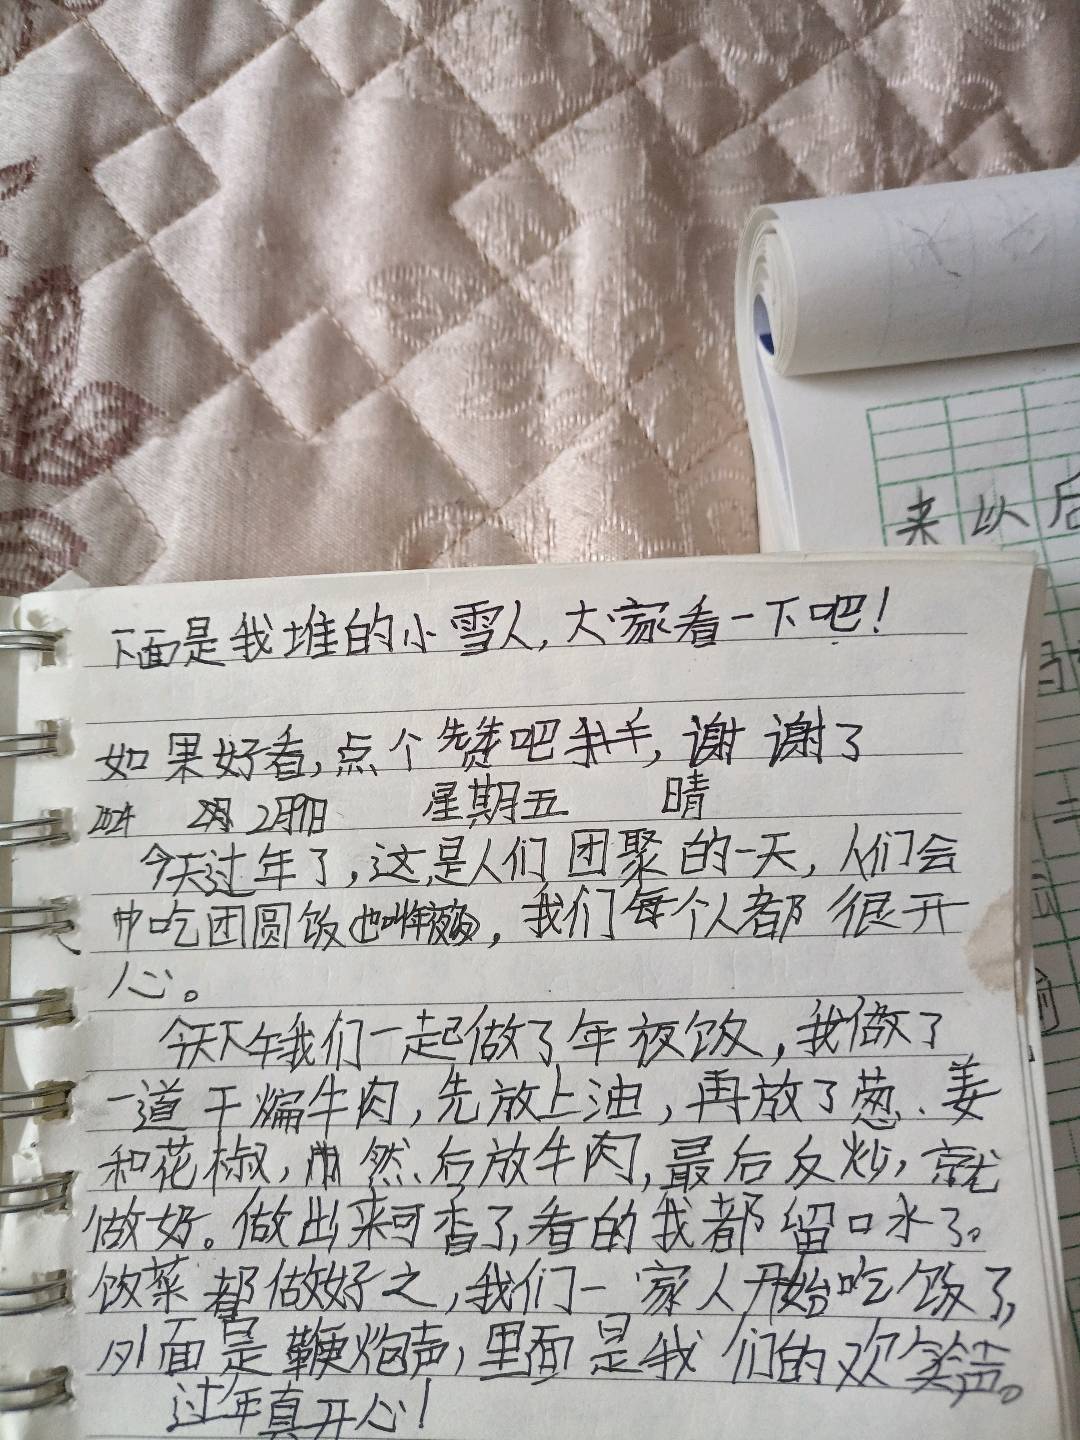 来以后
下面是我堆的小雪人，大家看一下吧！
如果好看，点个赞吧，谢谢了
2024 2月9日 星期五 晴
今天过年了，这是人们团聚的一天，人们会
吃团圆饭（也叫年夜饭），我们每个人都很开
心。
今天下午我们一起做了年夜饭，我做了
一道干煸牛肉，先放上油，再放了葱、姜
和花椒，然后放牛肉，最后反炒，就
做好。做出来可香了，看的我都留口水了。
饭菜都做好之，我们一家人开始吃饭了，
外面是鞭炮声，里面是我们的欢笑声。
过年真开心！